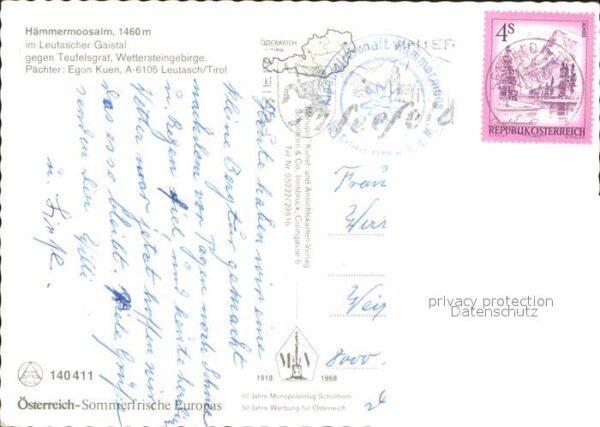 Hämmermoosalm, 1460 m
im Leutascher Gaistal
gegen Teufelsgrat, Wettersteingebirge.
Pächter: Egon Kuen, A-6105 Leutasch/Tirol
ÖSTERREICH
TIROL
Seefeld
4S
REPUBLIK ÖSTERREICH
Heute haben wir eine
kleine Bergtour gemacht
nachdem vor Tagen noch Schnee
u. Regen fiel und heute herrl.
Wetter war jetzt hoffen wir
das es so bleibt. Viele Grüße
senden Dir
u.
Kunst- und Ansichtskarten-Verlag
Schöllhorn & Co., Innsbruck, Colingasse 6
Tel. Nr. 05222/29616
Frau
8000
privacy protection
Datenschutz
1918
1968
50 Jahre Monopolverlag Schöllhorn
50 Jahre Werbung für Österreich
140 411
Österreich-Sommerfrische Europas